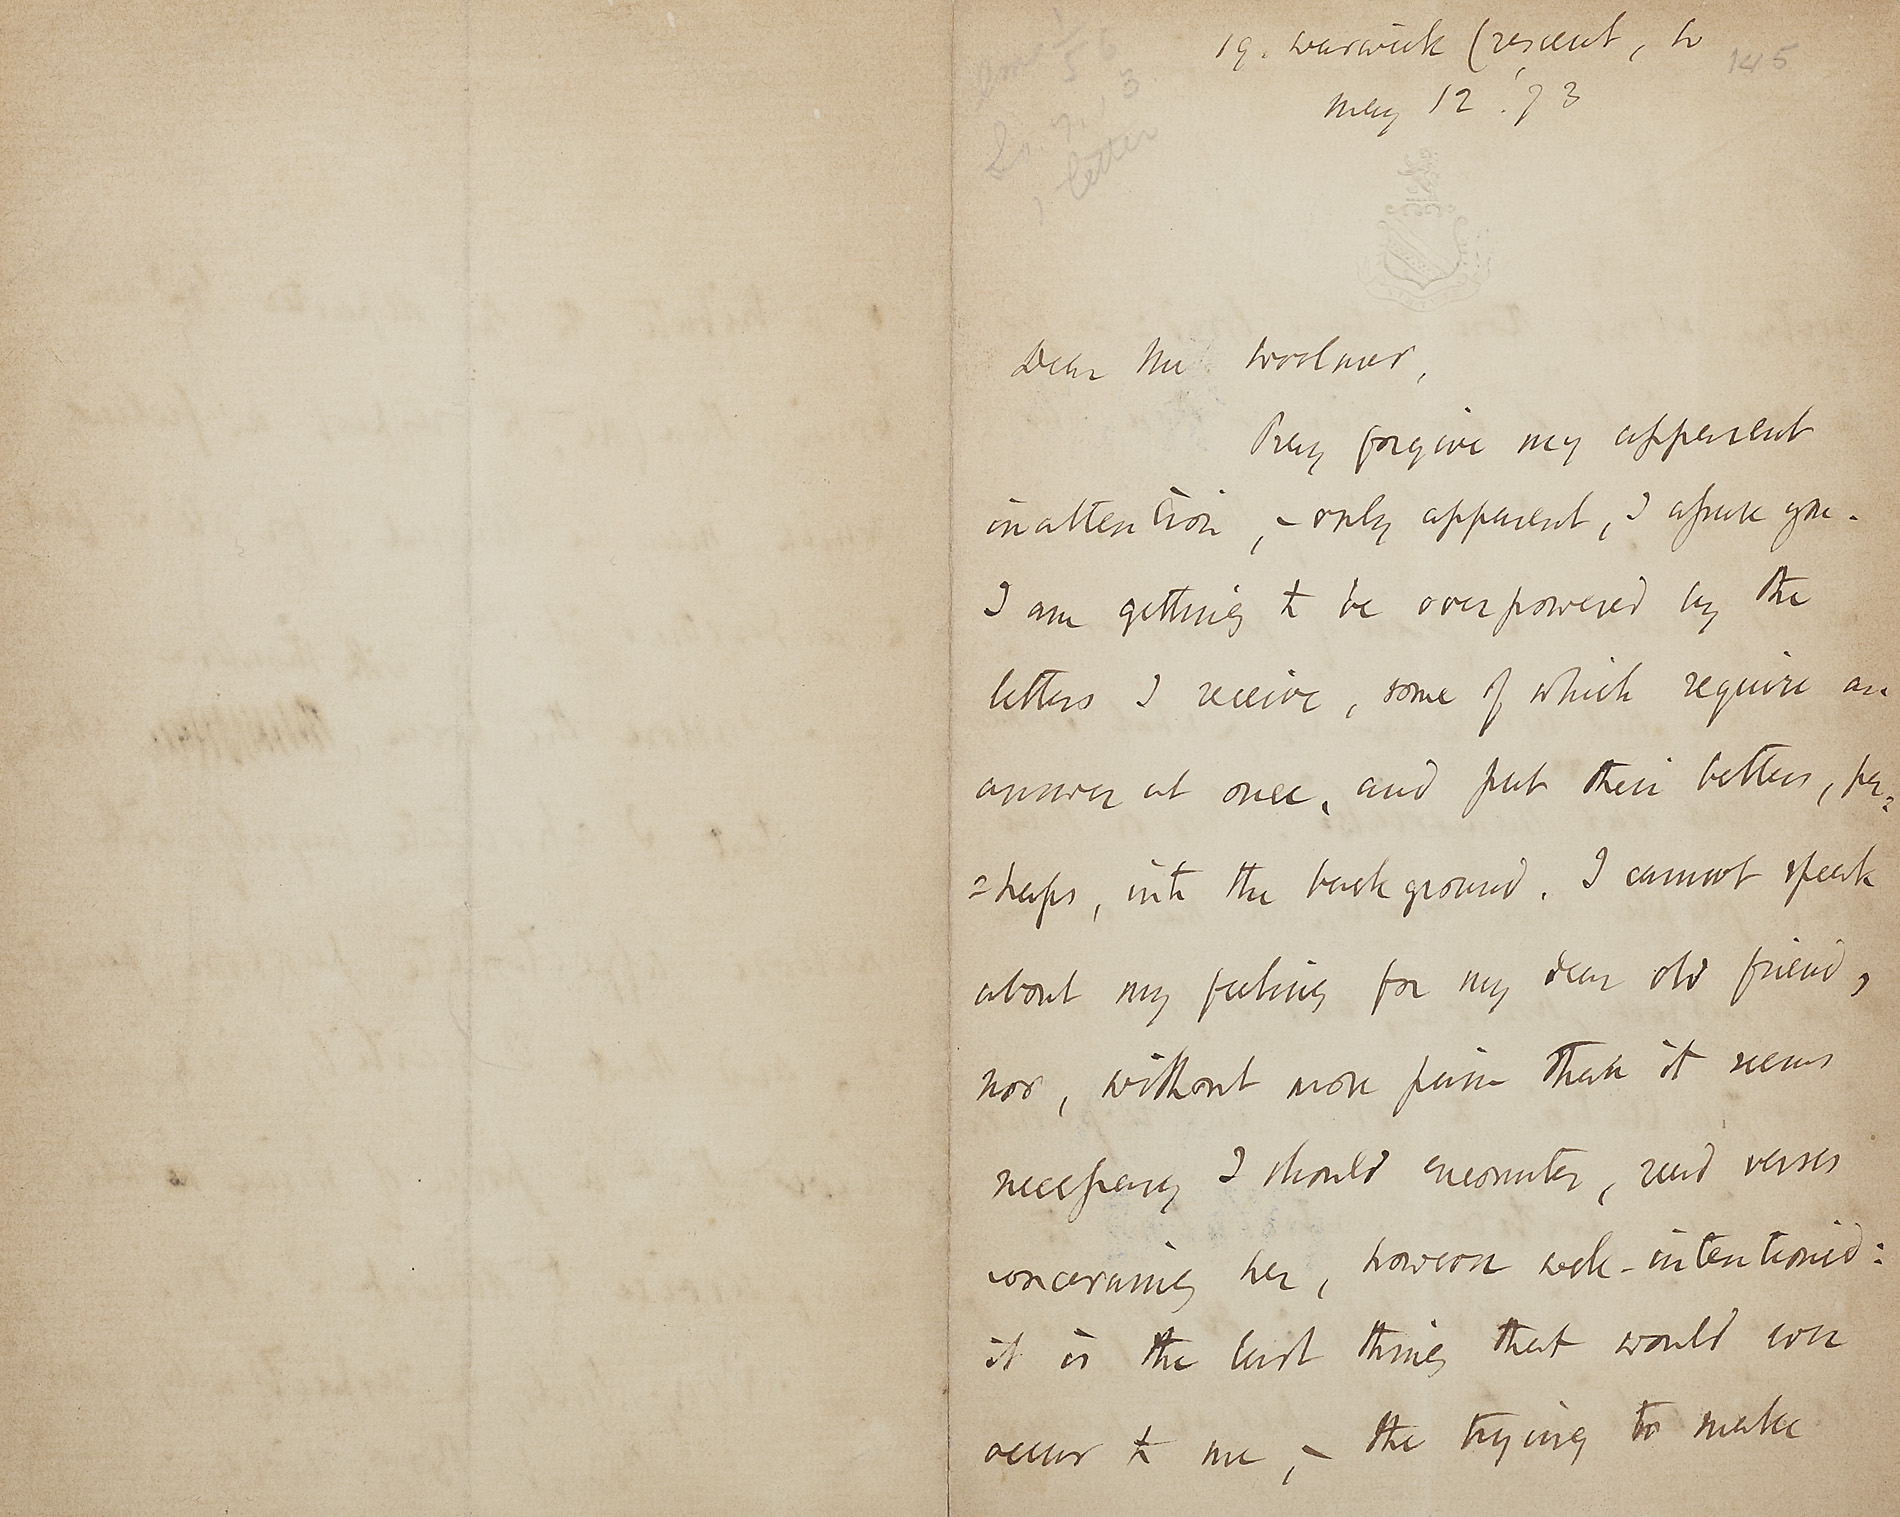 19. Warwick Crescent, W
145
May 12. '73
letter
Dear Mr Woolner,
Pray forgive my apparent
inattention, – only apparent, I assure you.
I am getting to be overpowered by the
letters I receive, some of which require an
answer at once, and put their betters, per=
=haps, into the back ground. I cannot speak
about my feeling for my dear old friend,
nor, without more pain than it seems
necessary I should encounter, read verses
concerning her, however well-intentioned:
it is the last thing that would ever
occur to me, – the trying to make